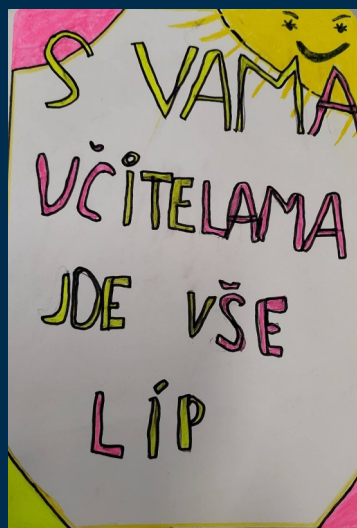 S VAMA
UČITELAMA
JDE VŠE
LÍP